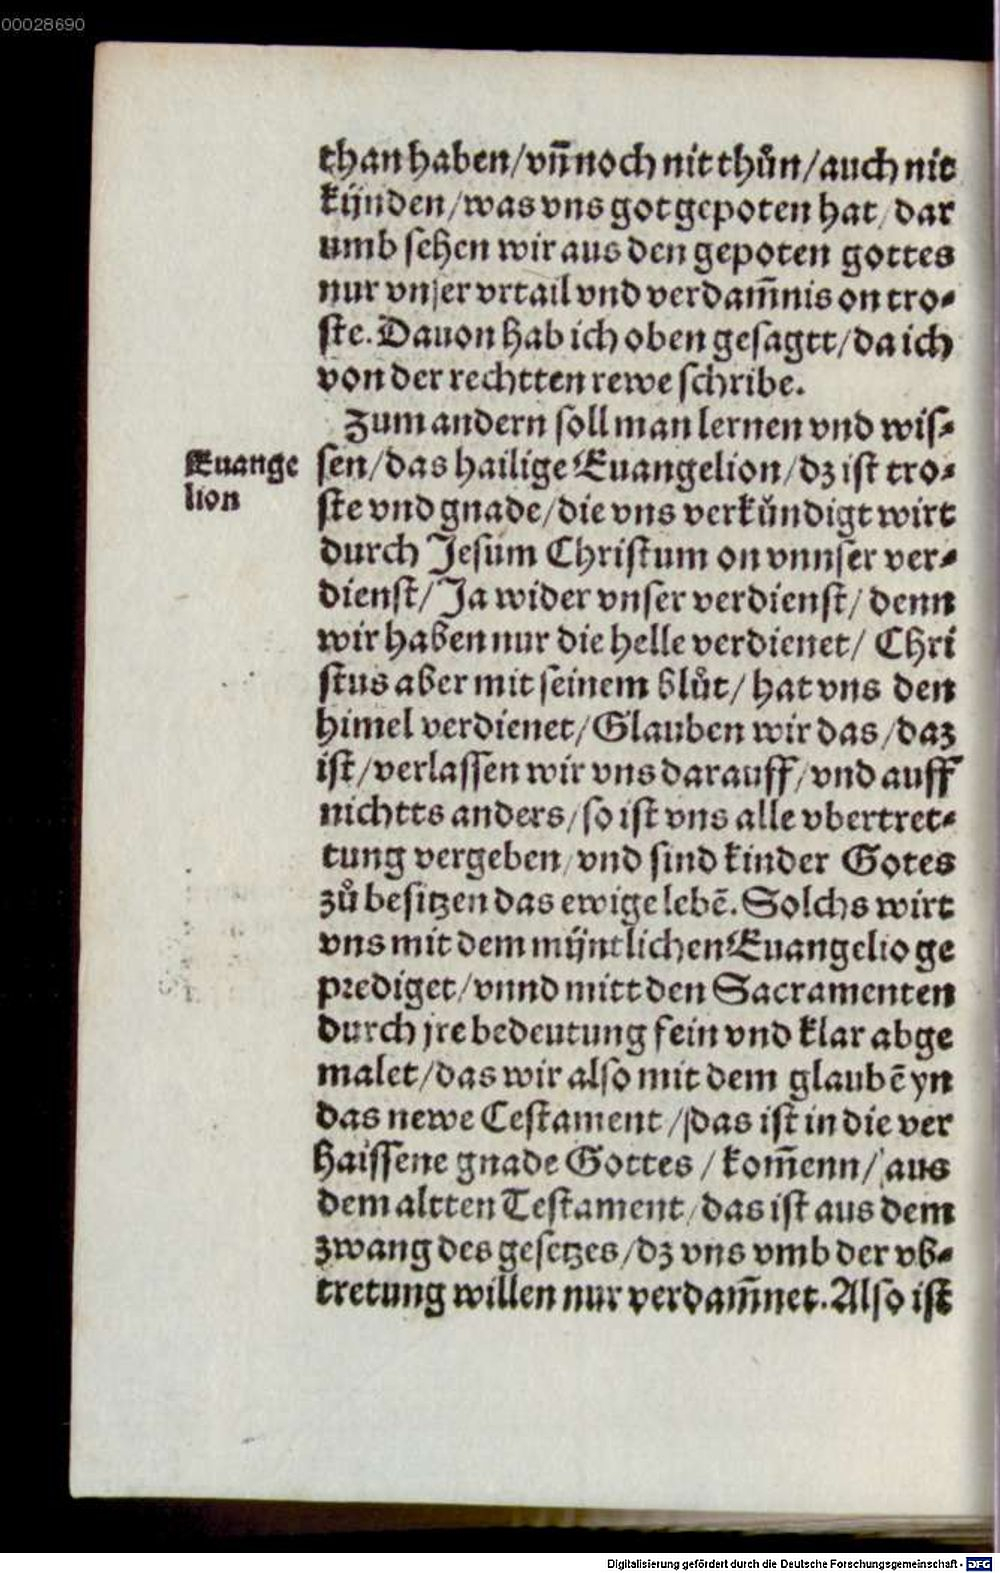 00028690
than haben/vn̄ noch nit thůn/auch nit
kÿnden/was vns got gepoten hat/dar
umb sehen wir aus den gepoten gottes
nur vnser vrtail vnd verdam̄nis on tro⸗
ste. Dauon hab ich oben gesagtt/da ich
von der rechtten rewe schribe.
Zum andern soll man lernen vnd wis⸗
Euange
lion
sen/das hailige Euangelion/dz ist tro⸗
ste vnd gnade/die vns verkůndigt wirt
durch Jesum Christum on vnnser ver⸗
dienst/Ja wider vnser verdienst/denn
wir haben nur die helle verdienet/ Chri
stus aber mit seinem blůt/ hat vns den
himel verdienet/Glauben wir das/daz
ist/verlassen wir vns darauff/vnd auff
nichtts anders/so ist vns alle vbertret⸗
tung vergeben/vnd sind kinder Gotes
zů besitzen das ewige lebē. Solchs wirt
vns mit dem mÿntlichen Euangelio ge
prediget/vnnd mitt den Sacramenten
durch jre bedeutung fein vnd klar abge
malet/das wir also mit dem glaubē yn
das newe Testament/das ist in die ver
haissene gnade Gottes/kom̄enn/aus
dem altten Testament/das ist aus dem
zwang des gesetzes/dz vns vmb der vb⸗
tretung willen nur verdam̄net. Also ist
Digitalisierung gefördert durch die Deutsche Forschungsgemeinschaft - DFG